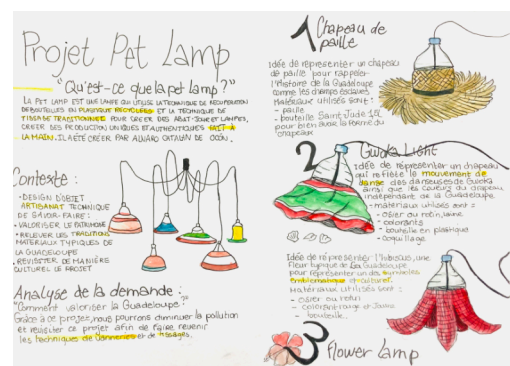 Projet Pet Lamp
"Qu'est-ce que la pet lamp ?"
LA PET LAMP EST UNE LAMPE QUI UTILISE LA TECHNIQUE DE RÉCUPÉRATION
DE BOUTEILLES EN PLASTIQUE RECYCLÉES ET LA TECHNIQUE DE
TISSAGE TRADITIONNEL POUR CRÉER DES ABAT-JOUR ET LAMPES,
CRÉER DES PRODUCTION UNIQUES ET AUTHENTIQUES FAIT À
LA MAIN. IL A ÉTÉ CRÉER PAR ALVARO CATALÁN DE OCÓN.
Contexte :
-DESIGN D'OBJET
ARTISANAT TECHNIQUE
DE SAVOIR-FAIRE :
-VALORISER LE PATRIMOINE
-RELEVER LES TRADITION
MATÉRIAUX TYPIQUES DE
LA GUADELOUPE
-REVISITER DE MANIÈRE
CULTUREL CE PROJET
Analyse de la demande :
"Comment valoriser la Guadeloupe ?"
Grâce à ce projet, nous pourrons diminuer la pollution
et revisiter ce projet afin de faire revenir
les techniques de vanneries et de tissages.
1 Chapeau de
paille
Idée de représenter un chapeau
de paille pour rappeler
l'Histoire de la Guadeloupe
comme les champs esclaves.
Matériaux utilisés sont :
- paille
- bouteille Saint Jude 1.5L
pour bien avoir la forme du
chapeaux
2 Gwoka Light
Idée de représenter un chapeau
qui reflète le mouvement de
danse des danseuses de Gwoka
ainsi que les couleurs du drapeau
indépendant de la Guadeloupe.
- matériaux utilisés sont :
- osier ou rotin, laine
- colorants
- bouteille en plastique
- coquillage
Idée de représenter l'hibiscus, une
fleur typique de la Guadeloupe
pour représenter un des symboles
emblématique et culturel.
Matériaux utilisés sont :
- osier ou rotin
- colorant rouge et jaune
- bouteille
3 Flower Lamp